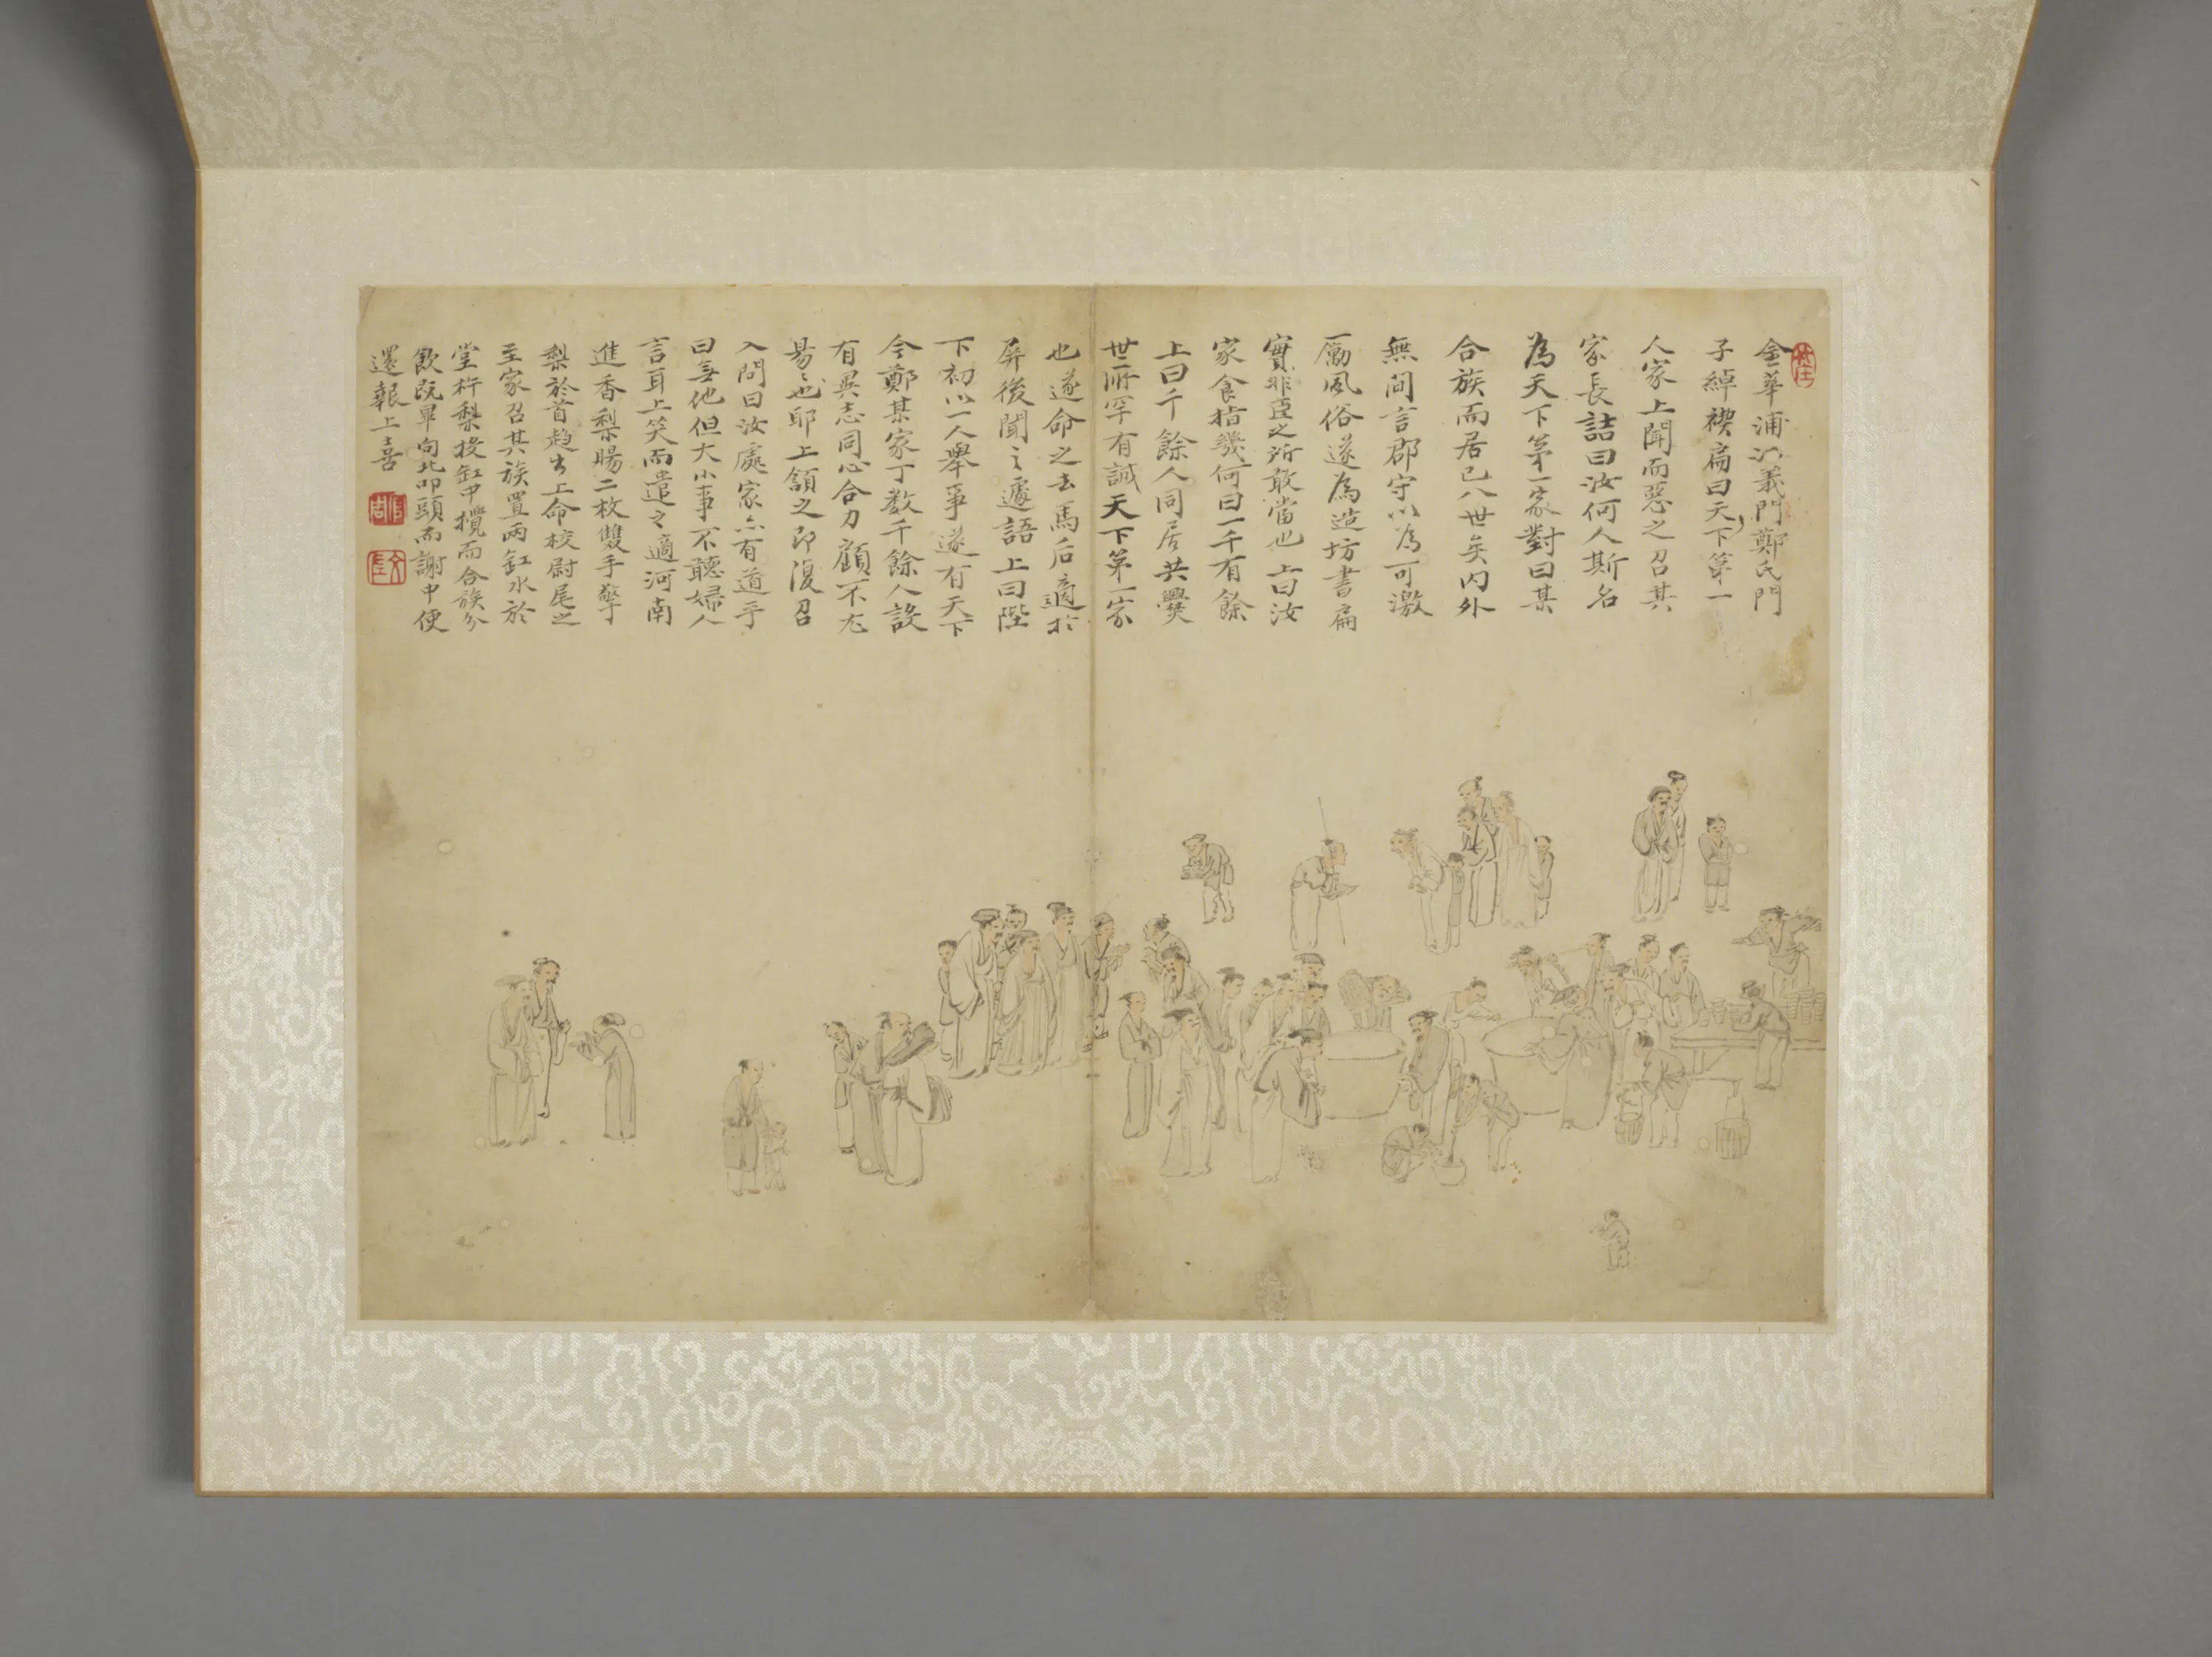 金華浦江義門鄭氏門
子綽楔扁曰天下第一
人家上聞而惡之召其
家長詰曰汝何人斯名
為天下第一家對曰某
合族而居已八世矣内外
無間言郡守以為可激
厲風俗遂為造坊書扁
實非臣之所敢當也上曰汝
家食指幾何曰一千有餘
上曰千餘人同居共爨
世所罕有誠天下第一家
也遂命之去馬后適於
屏後聞之遽語上曰陛
下初以一人舉事遂有天下
今鄭某家丁數千餘人設
有異志同心合力顧不尤
易易也耶上頷之即復召
入問曰汝處家亦有道乎
曰無他但大小事不聽婦人
言耳上笑而遣之適河南
進香梨賜二枚雙手擎
梨於首趋出上命校尉尾之
至家召其族置兩缸水於
堂杵梨投缸中攪而合族分
飲既畢向北叩頭而謝中使
還報上喜